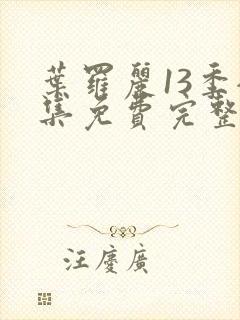 葉羅麗13季全
集免費完整
汪慶廣